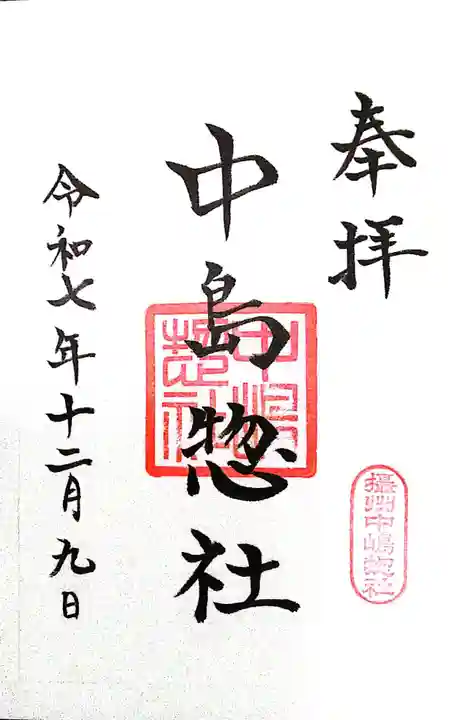 奉拝
摂州中嶋惣社
中島惣社
中嶋惣社
令和七年十二月九日